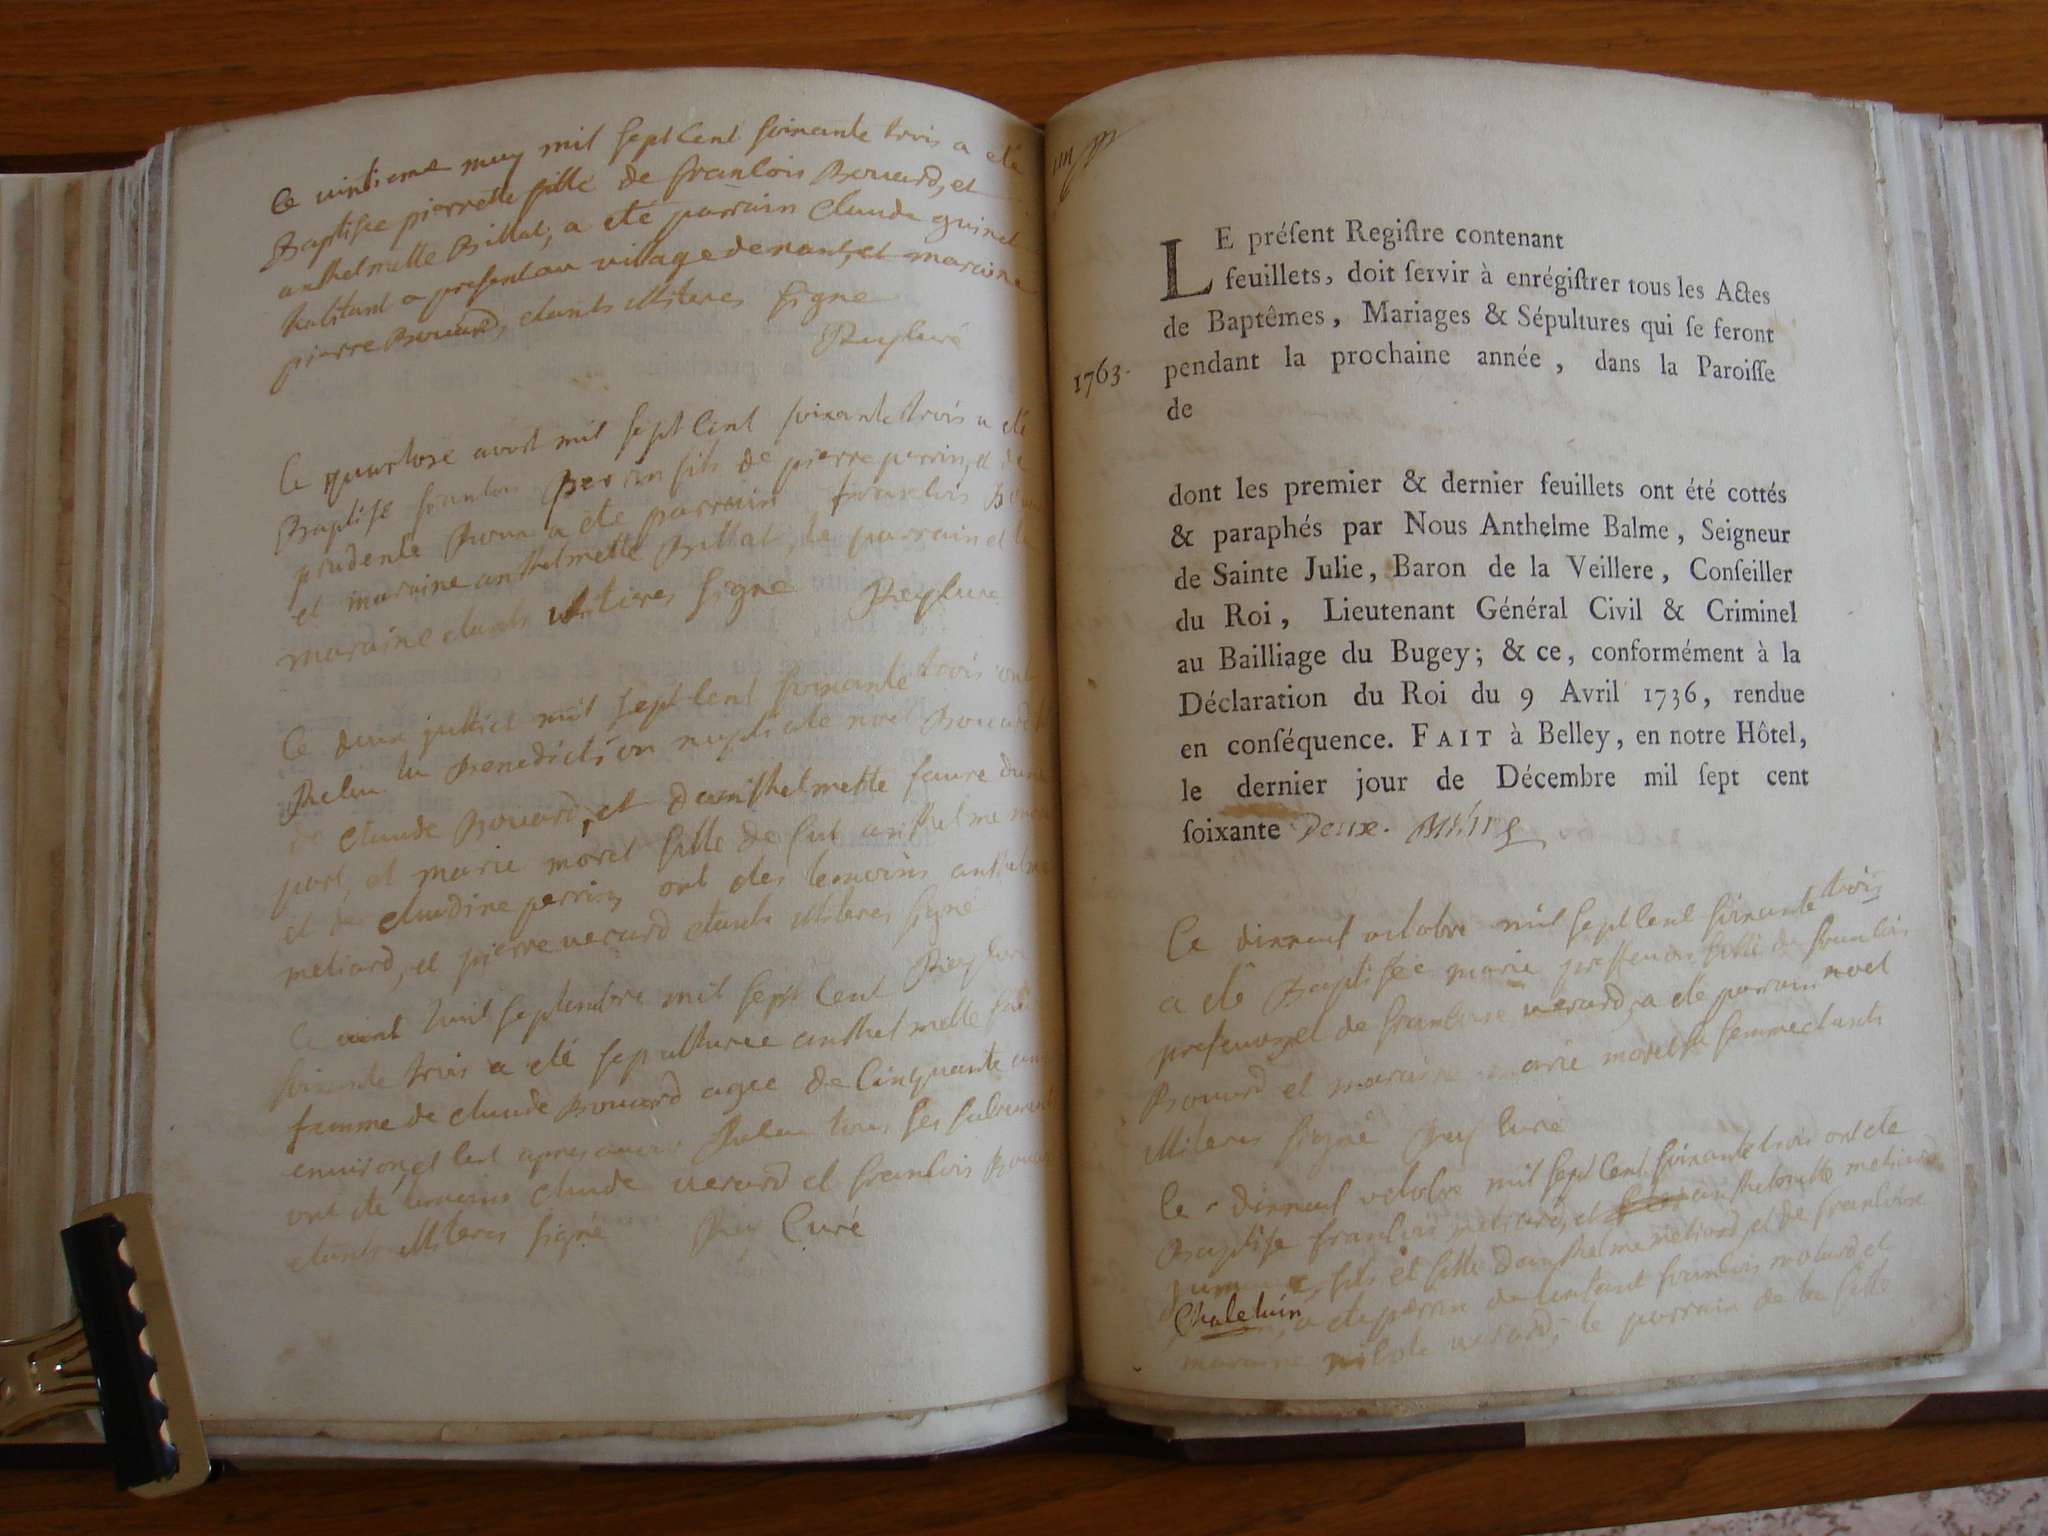 Ce vintieme may mil sept Cent soixante trois a eté
Baptisée pierrette fille de francois Bouard, et
anthelmette Billat, a eté parrain Claude guinet
habitant a present au village de nant, et maraine
pierre Bouard, étants illiteres signe
Rey curé
Ce quartose avost mil sept Cent soixante trois a été
Baptise francois perrin fils de pierre perrin, et de
prudente a ete parrain francois
et maraine anthelmette Billat, le parrain et la
maraine étants illiteres signe Rey curé
Ce deux juilliet mil sept Cent soixante trois ont
la Benediction nuptiale noel Bouard
de claude Bouard, et danthelmette faure dune
part, et marie morel fille de fut anthelme
et de claudine perrin, ont etes temoins anthelme
metiard, et pierre verard étants illiteres signé
Rey curé
Ce vint huit septembre mil sept Cent
soixante trois a eté sepulturee anthelmette
femme de claude Bouard agee de Cinquante ans
environ, et Cest apres avoir tous ses sacrements
ont ete temoins claude verard et francois Bouard
étants illiteres signé Rey Curé
LE préſent Regiſtre contenant
feuillets, doit ſervir à enrégiſtrer tous les Actes
de Baptêmes, Mariages & Sépultures qui ſe feront
1763. pendant la prochaine année, dans la Paroiſſe
de
dont les premier & dernier feuillets ont été cottés
& paraphés par Nous Anthelme Balme, Seigneur
de Sainte Julie, Baron de la Veillere, Conſeiller
du Roi, Lieutenant Général Civil & Criminel
au Bailliage du Bugey; & ce, conformément à la
Déclaration du Roi du 9 Avril 1736, rendue
en conſéquence. FAIT à Belley, en notre Hôtel,
le dernier jour de Décembre mil ſept cent
ſoixante Deux.
Ce dixneuf octobre mil sept Cent soixante trois
a eté Baptisée marie fille de francois
et de francoise verard, a eté parrain noel
Bouard et maraine marie morel sa femme étants
illiteres signé Rey Curé
le dixneuf octobre mil sept Cent soixante trois ont ete
Baptise francois metiard, et anthelmette metiard
fils et fille danthelme metiard, et de francoise
Chaleluin, a ete parrin de lenfant francois et
maraine nicole verard, le parrain de la fille